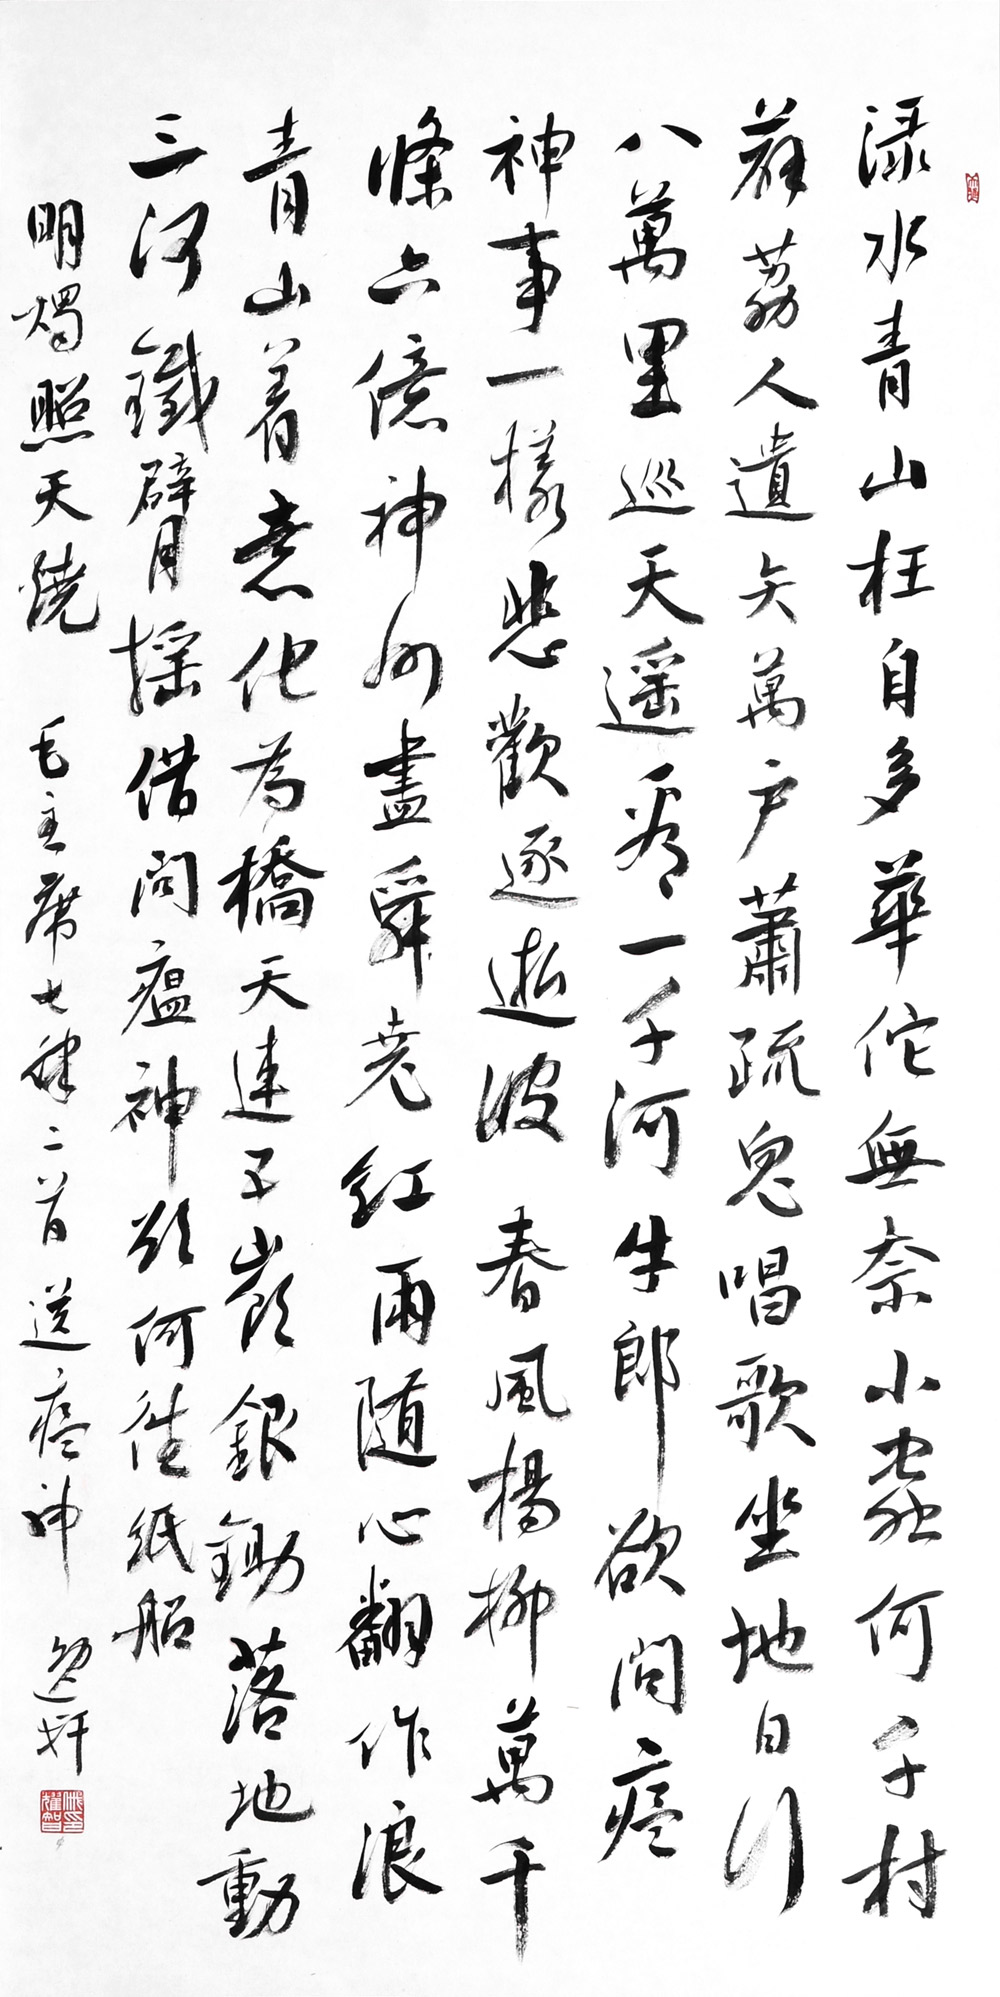 渌水青山枉自多華佗無奈小蟲何千村
薜荔人遺矢萬户蕭疏鬼唱歌坐地日行
八萬里巡天遥看一千河牛郎欲問瘟
神事一樣悲歡逐逝波 春風楊柳萬千
條六億神州盡舜堯紅雨随心翻作浪
青山着意化為橋天連五嶺銀鋤落地動
三河鐵臂摇借問瘟神欲何往紙船
明燭照天燒 毛主席七律二首送瘟神